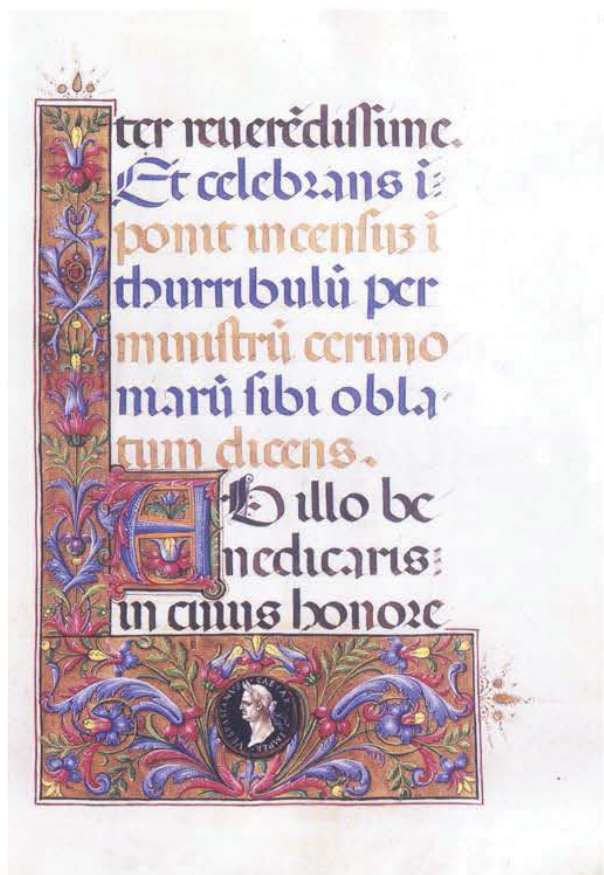 ter reuerẽdissime.
Et celebrans ĩ:
ponit incensuʒ ĩ
thurribulũ per
ministrũ cerimo
niarũ sibi obla
tum dicens.
AB illo be
nedicaris:
in cuius honore